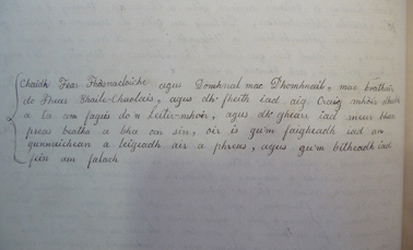 Chaidh Fear Fhasnacloiche agus Domhnal mac Dhomhnuil, mac brathair
do Fhear Bhaile-Chaolais, agus dh' fheith iad aig Craig mhòir
a la am fagus do'n Leitir-mhòir, agus dh' ghearr iad meur bhar
preas beatha a bha an sin, oir is gu'm faigheadh iad an
gunnaichean a leigeadh air a phreas, agus gu'm bitheadh iad
fein am falach